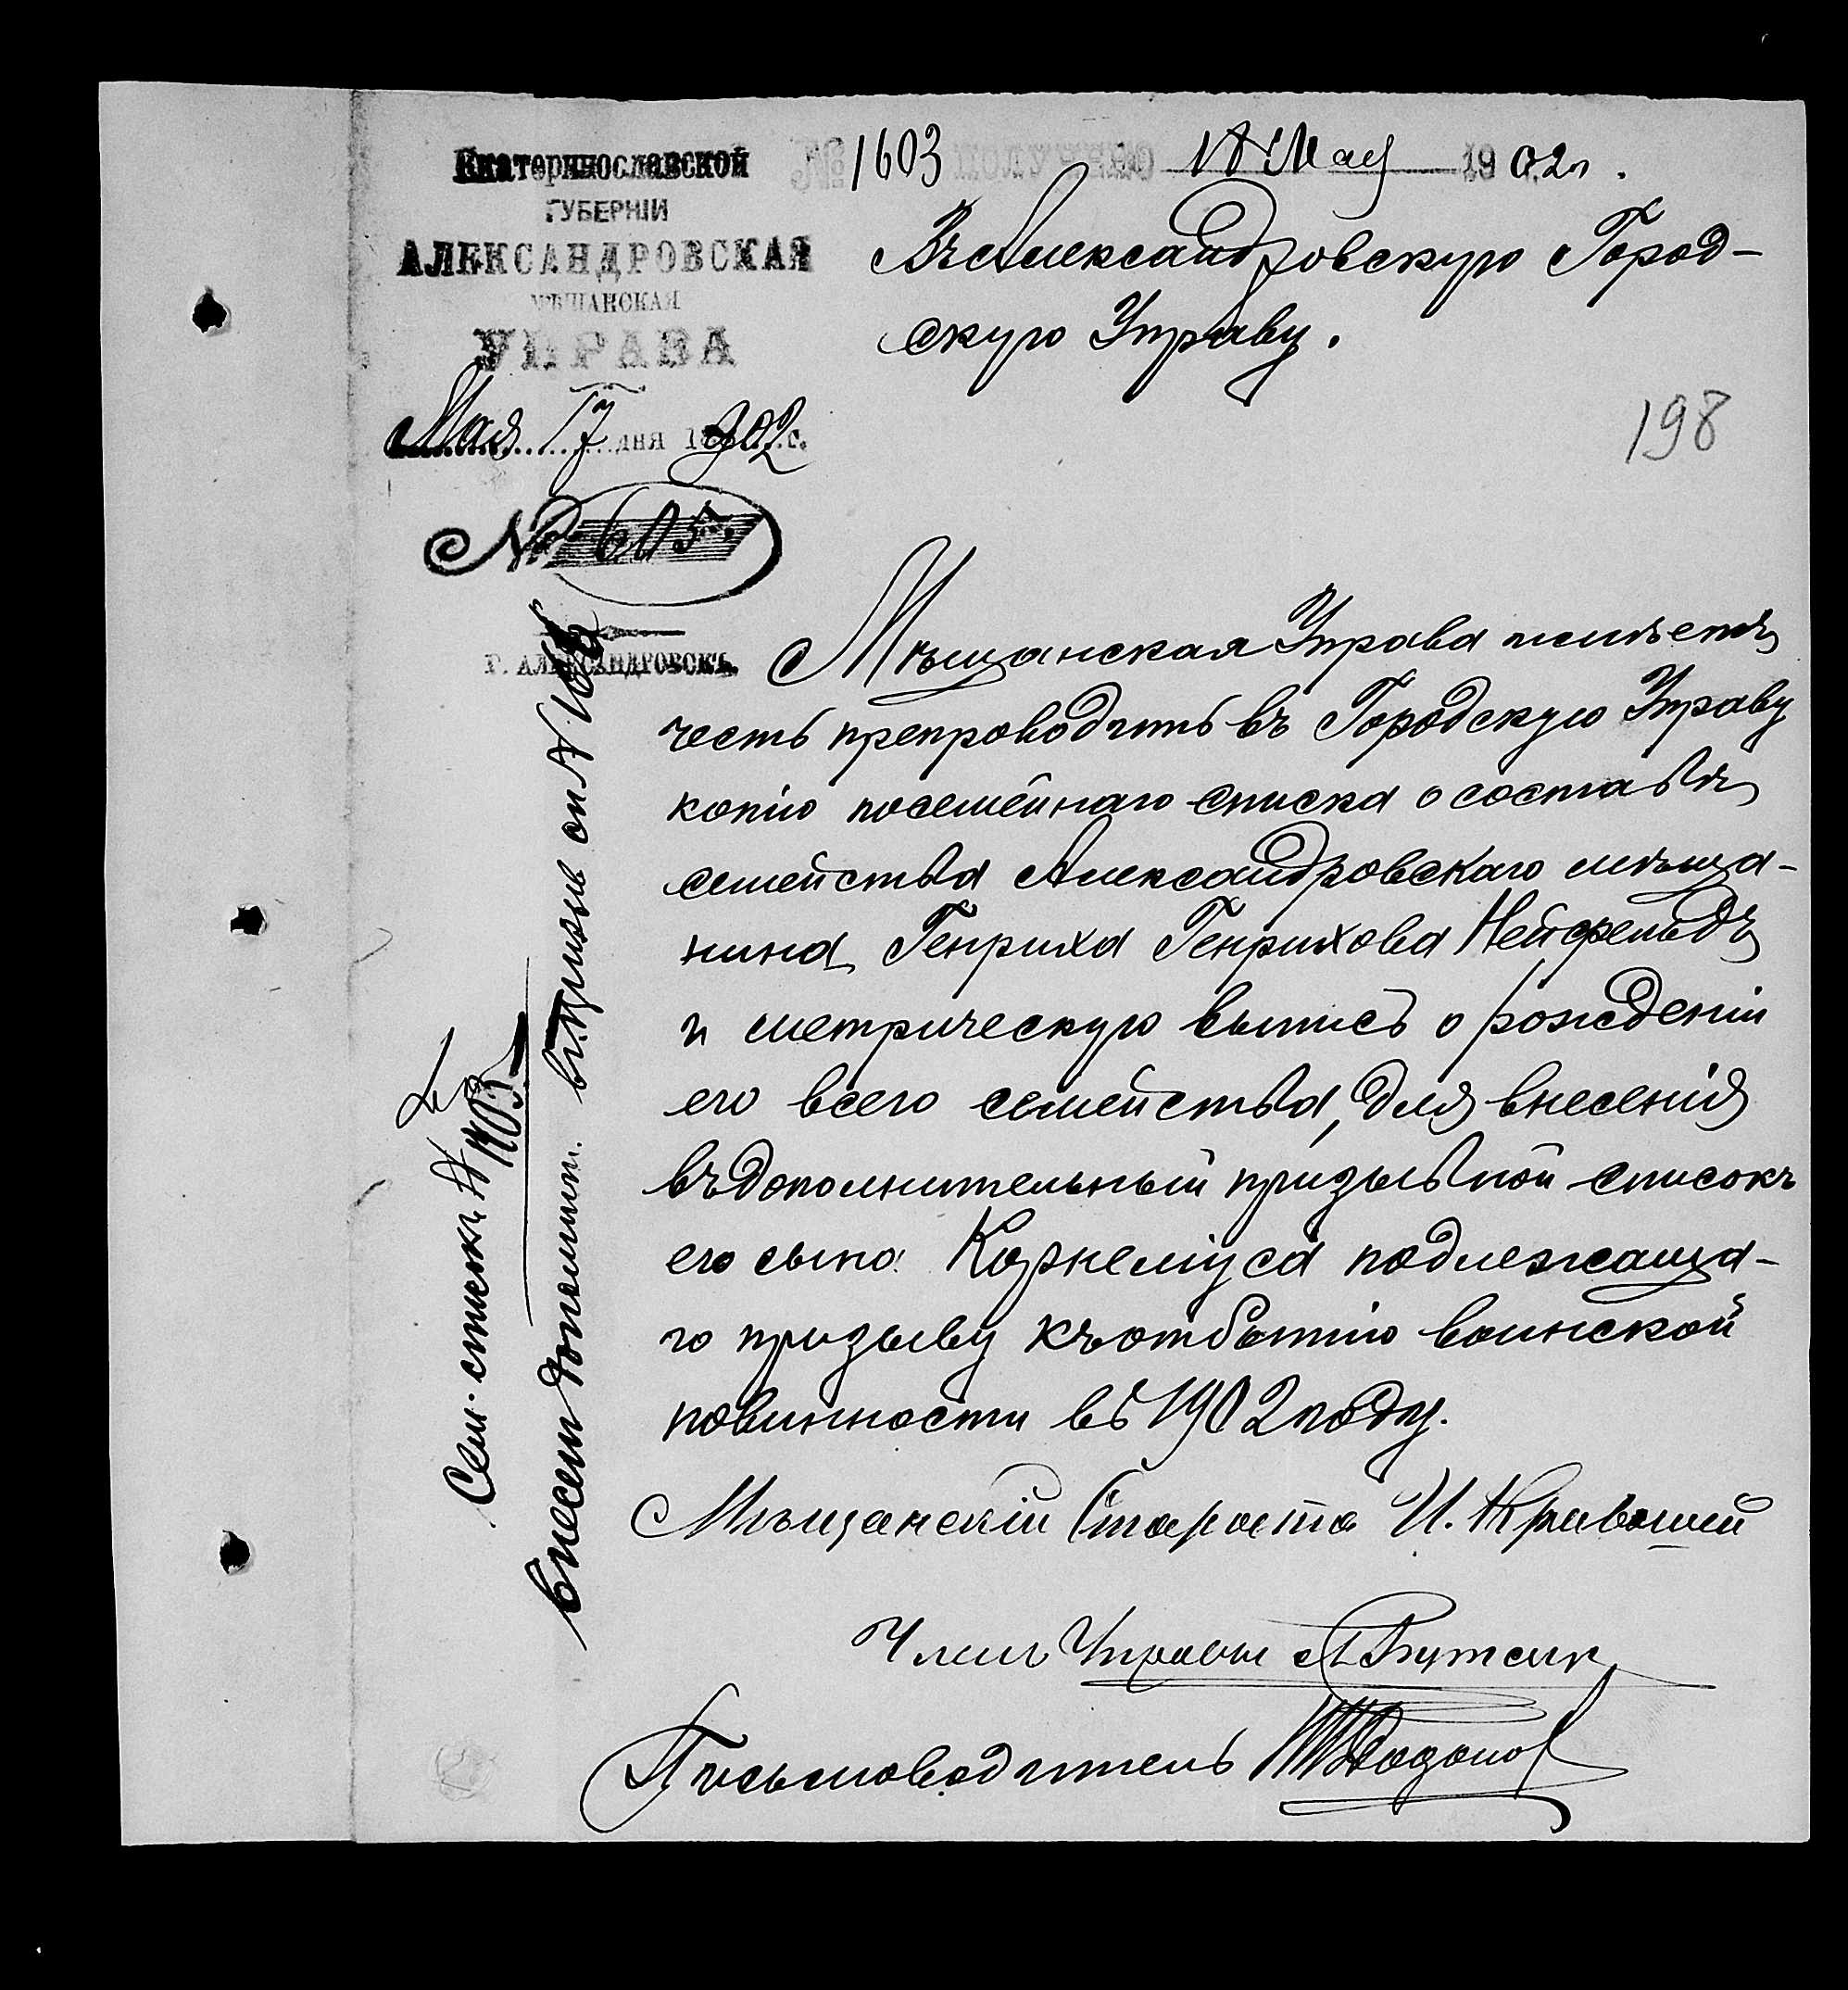 Екатеринославской
ГУБЕРНІИ
АЛЕКСАНДРОВСКАЯ
МѢЩАНСКАЯ
УПРАВА
Мая 17 дня 1902 г.
№ 605.
Г. АЛЕКСАНДРОВСКЪ.
№ 1603 18 Мая 1902 г.
Въ Александровскую Город-
скую Управу.
198
Мѣщанская Управа имѣетъ
честь препроводить въ Городскую Управу
копію посемейнаго списка о составѣ
семейства Александровскаго мѣща-
нина Генриха Генрихова Нейфельдъ
и метрическую выпись о рожденіи
его всего семейства, для внесенія
въ дополнительный призывной списокъ
его сына Корнеліуса подлежаща-
го призыву къ отбытію воинской
повинности въ 1902 году.
Мѣщанскій Староста И. Кривошей
Членъ Управы
Письмоводитель
Сем. списокъ №
внесен дополнит. въ призыв. сп. №